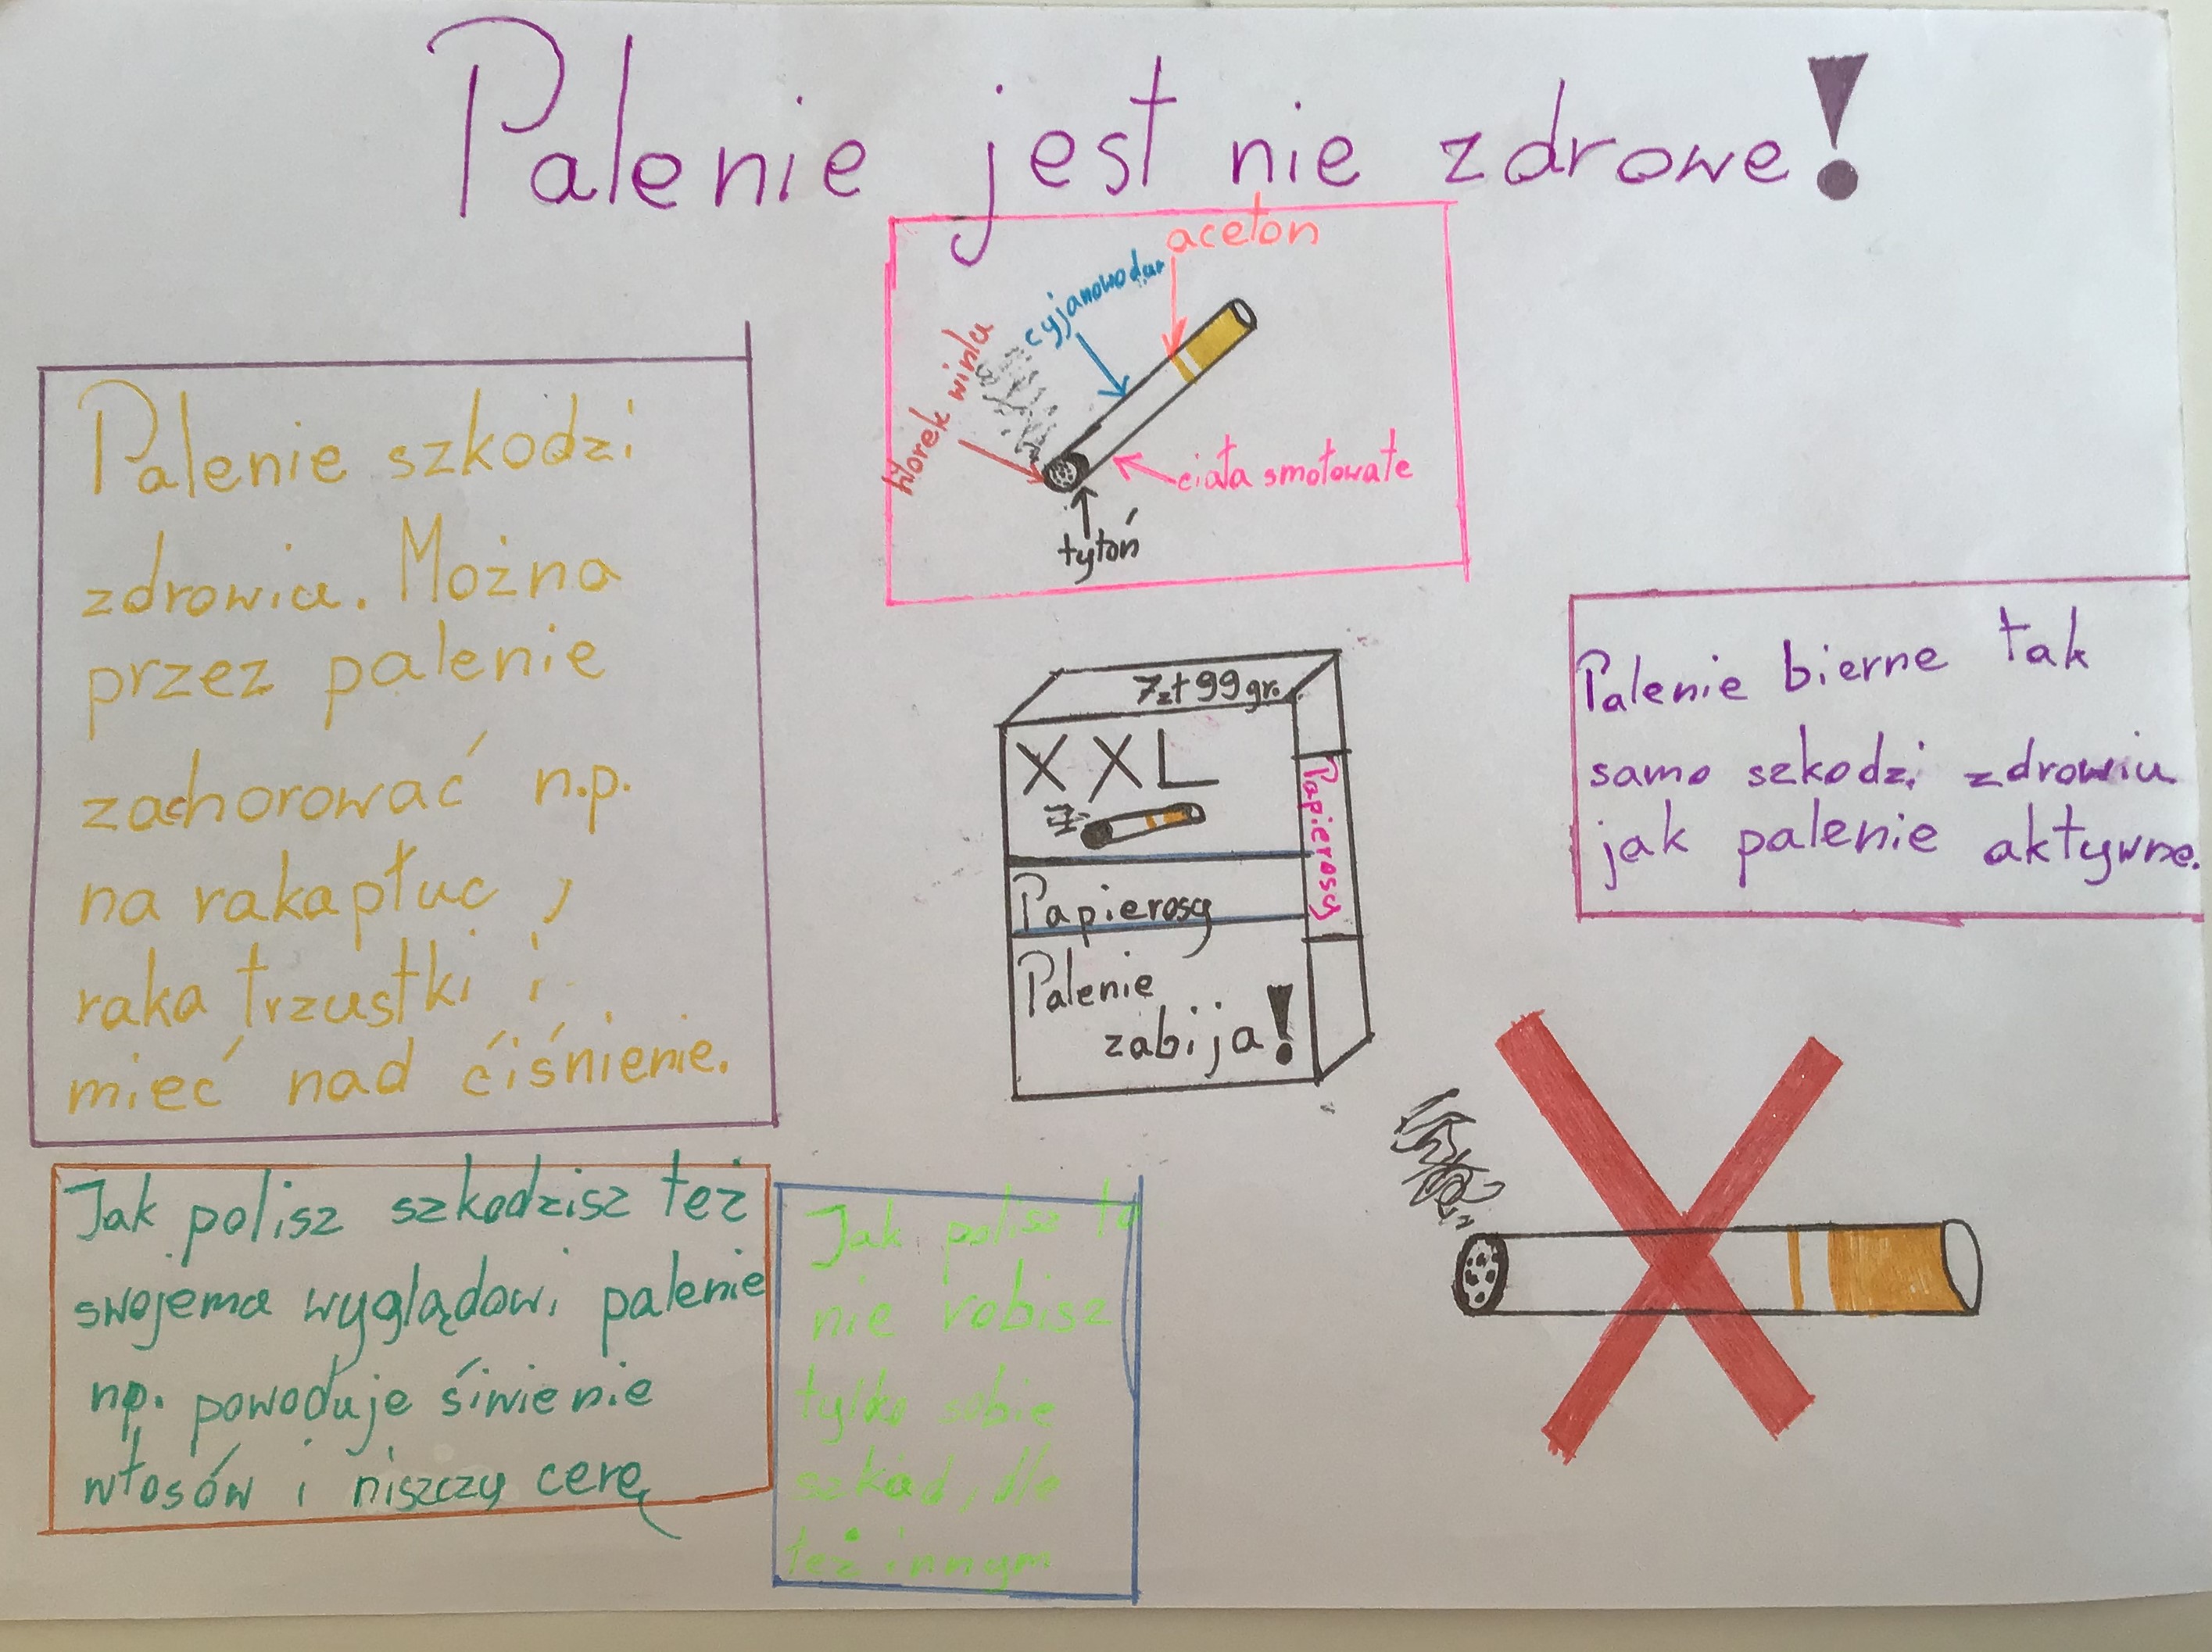 Palenie jest nie zdrowe!
aceton
cyjanowodur
hlorek winlu
ciała smołowate
tytoń
Palenie szkodzi
zdrowiu. Można
przez palenie
zachorować n.p.
na raka płuc,
raka trzustki i
mieć nad ćiśnienie.
7zł 99gr.
XXL
Papierosy
Papierosy
Palenie
zabija!
Palenie bierne tak
samo szkodzi zdrowiu
jak palenie aktywne.
Jak polisz szkodzisz też
swojema wyglądowi palenie
np. powoduje śiwienie
włosów i niszczy cerę
Jak polisz to
nie robisz
tylko sobie
szkód, ale
też innym